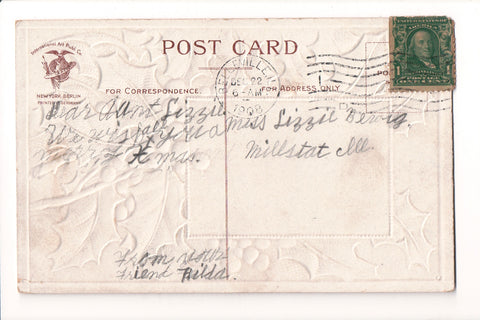 International Art Publ. Co.
NEW YORK-BERLIN
PRINTED IN GERMANY
POST CARD
FOR CORRESPONDENCE.
FOR ADDRESS ONLY
DEC 22
6-AM
1908
Dear Aunt Lizzie
We wish you a
Xmas.
Miss Lizzie
Millstat Ill.
From your
Friend Hilda.